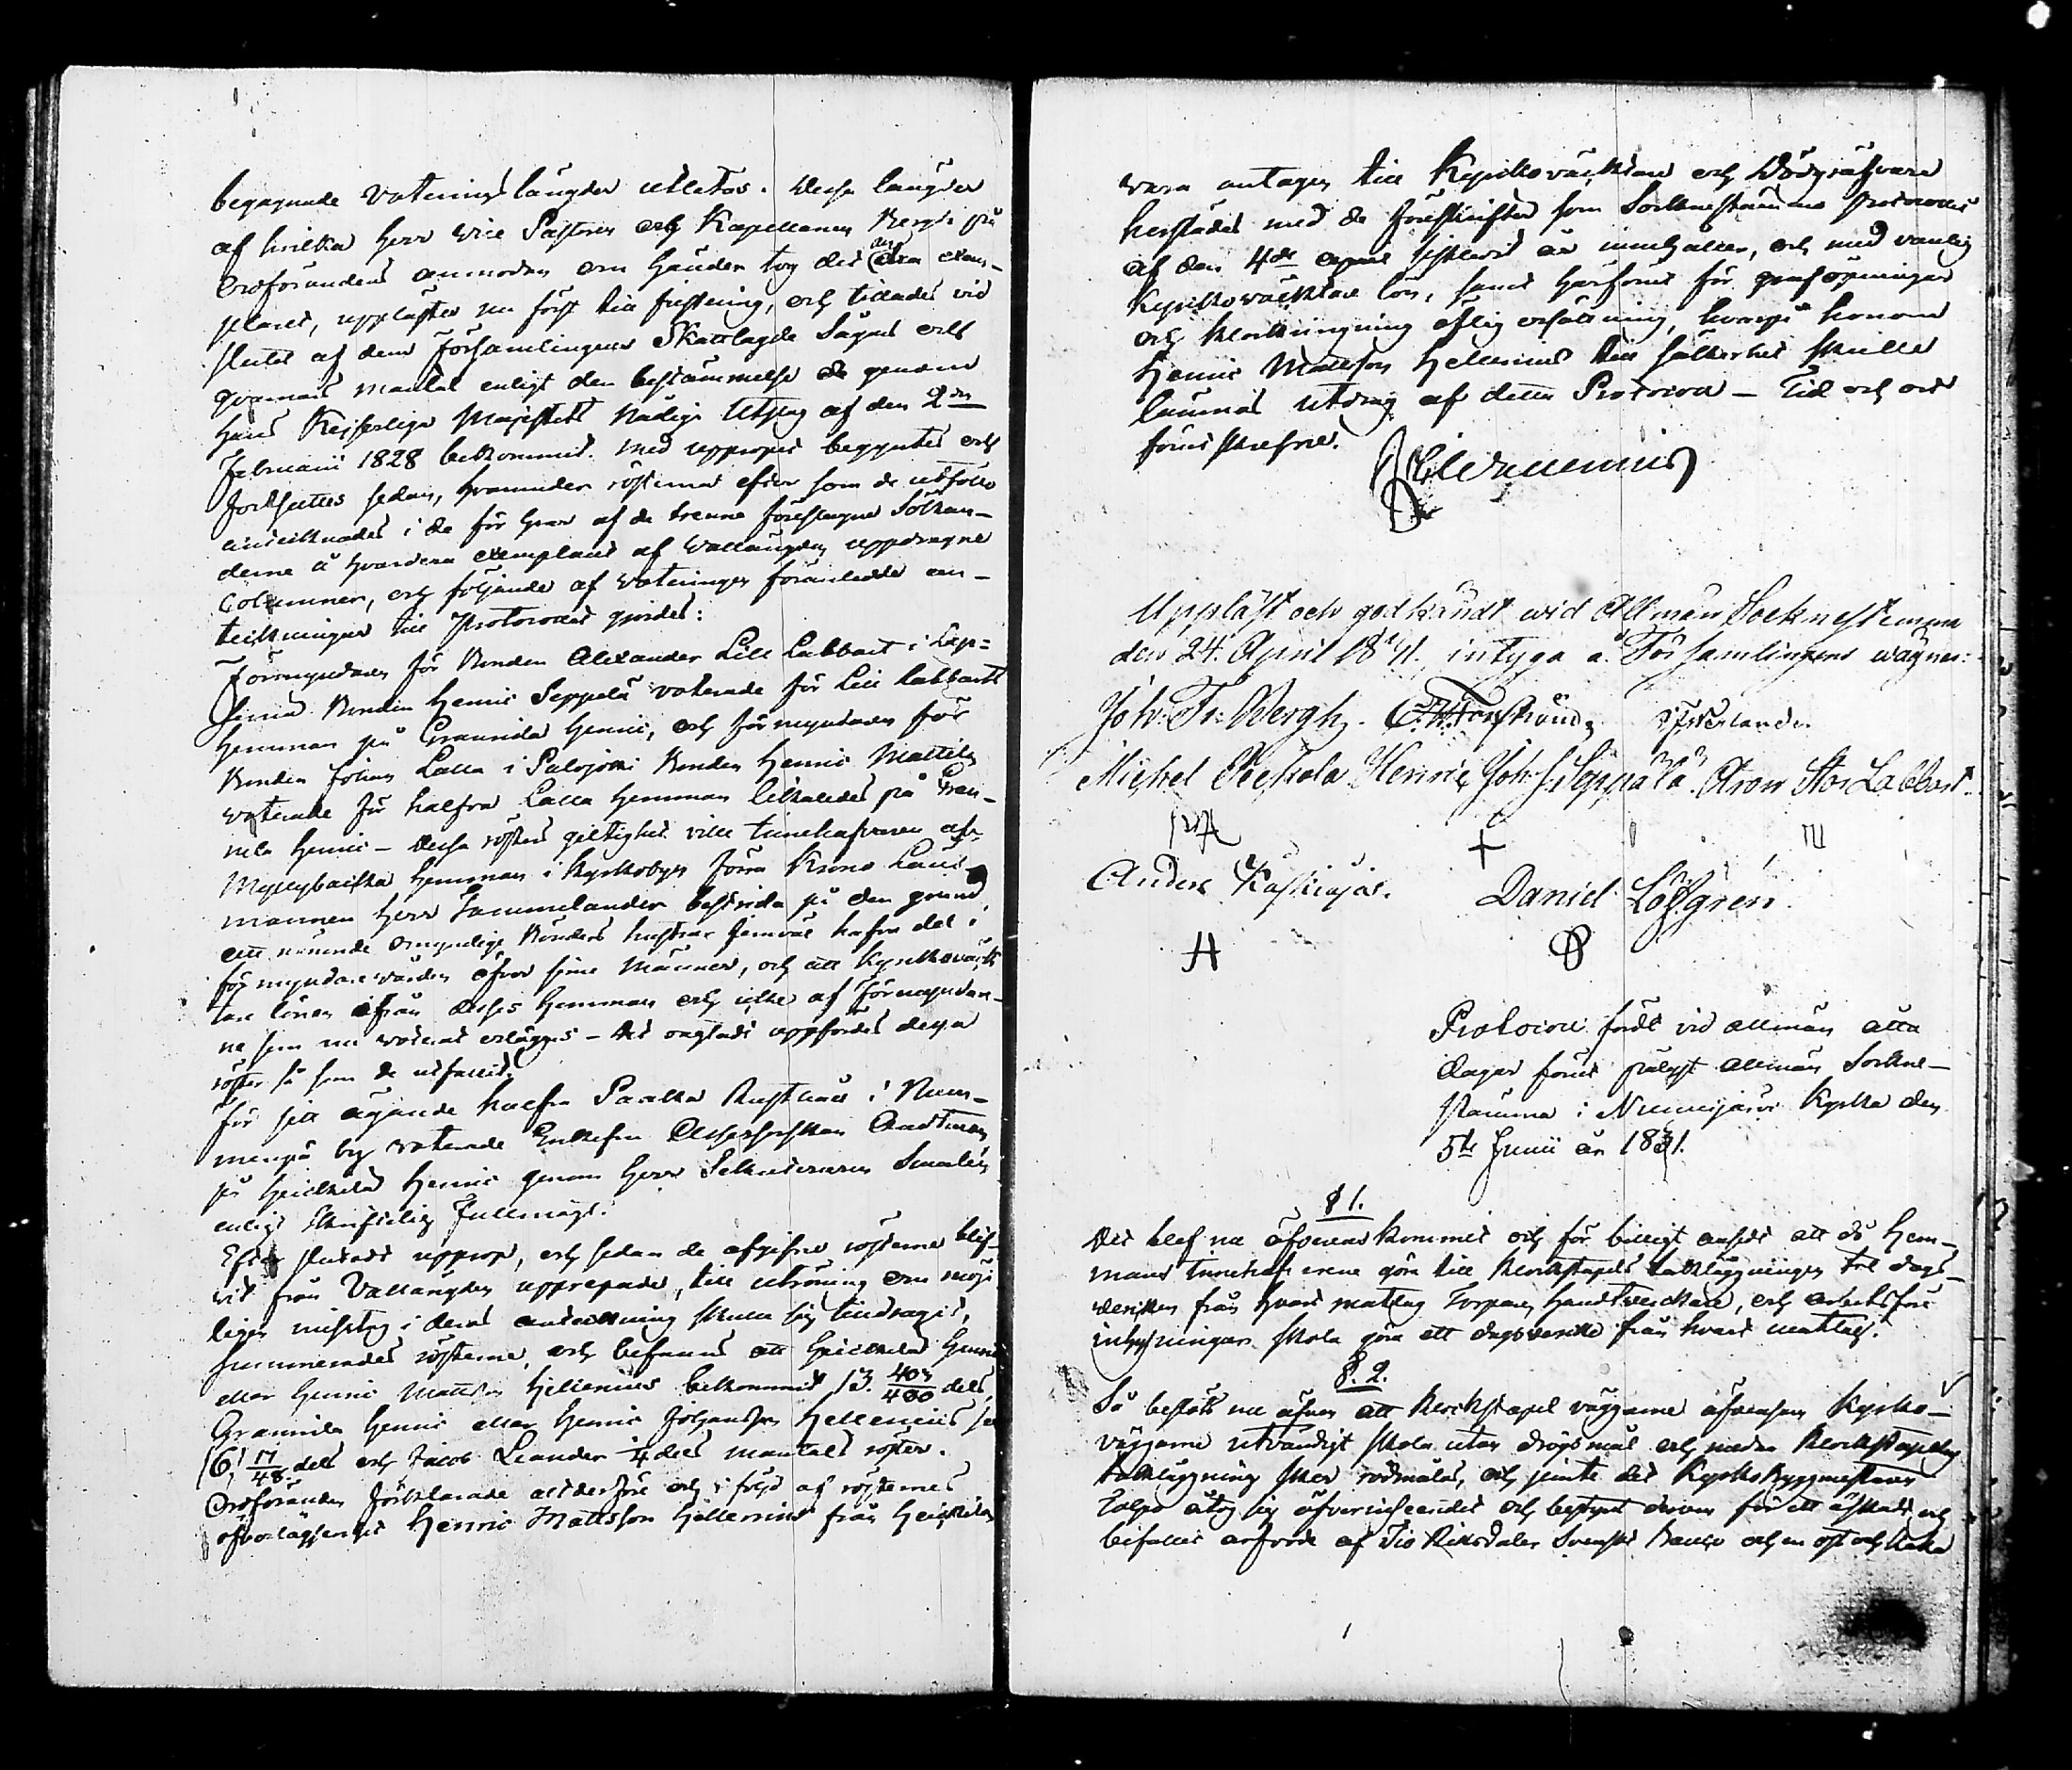 begagnade Voteringslängder utletas. Dessa längder
af hvilka Herr Vice Pastoren och Kapellanen Bergh på
Ordförandens anmodan om händer tog det ena exem-
plaret, upplästes nu först till justering, och tillades vid
slutet af dem Församlingens Skattlagde Sågars och
Qvarnars mantal enligt den bestämmelse de genom
Hans Kejserliga Majestäts Nådiga Utslag af den 2dra
Februarii 1828 bekommit. Med uppropet begyntes och
fortsattes sedan, hvarunder rösterna efter som de utföllo
antecknades i de för hvar af de trenne föreslagne Sökan-
derne å hvardera exemplaret af Vallängden uppdragne
Columner, och följande af voteringen föranledde an-
teckningar till Protocollet gjordes:
Förmyndaren för Bonden Alexander Lill Labbart i
Bonden Henric Seppelä voterade för Lill Labbarts
Hemman på Grannila Henric, och förmyndaren för
Bonden Johan Lalla i Palojoki Bonden Henric Mattila
voterade för halfva Lalla Hemman likaledes på Gran-
nila Henric – Dessa rösters giltighet ville Innehafvaren af
Myllybacka Hemman i Kyrkobyn förra Krono Läns-
mannen Herr Tammelander bestrida på den grund
att nämnde omyndige Bönders hustrur jemväl hafva del i
förmyndarevården öfver sine Männer, och att Kyrkoväk-
tare lönen ifrån dessa Hemman och icke af Förmyndar-
ne som nu voterat erlägges – Det oagtadt uppfördes dessa
röster så som de utfallit.
För sitt ägande halfva Paakka Rusthåll i Num-
menpä by voterade Enkefru Assessorskan Aadtman
på Heickilä Henric genom Herr Sekreteraren
enligt Skriftelig Fullmagt.
Efter slutadt upprop, och sedan de afgifne rösterne blif-
vit från Vallängden upprepade, till utröning om möj-
ligen misstag i deras anteckning skulle sig tilldragit,
summerades rösterne, och befanns att Heickilä Henric
eller Henric Mattsson Hellenius bekommit 13 403/480 dels,
Grannila Henric eller Henric Johansson Hellenius
16 17/48 dels och Jacob Leander 1/4 dels mantals röster.
Ordföranden förklarade alldenföre och i följd af rösternes
öfverlägsenhet Henric Mattsson Hellenius från Heickilä
vara antagen till Kyrkoväcktare och Dödgräfvare
härstädes med de föreskrifter som Sockenstämmo Protocollet
af den 4de April sistledit år innehåller, och med vanlig
Kyrkoväcktare lön, samt härförut för graföpningar
och klockringning öflig ersättning, hvarpå honom
Henric Mattsson Hellenius till säkerhet skulle
lämnas utdrag af detta Protocoll – Tid och ort
förut skrefne.
Uppläst och godkändt wid Allmän Socknestemma
den 24. April 1831. intyga å Församlingens wägnar:
Joh: Fr: Bergh. C. W. Forsstrand
Michel Henric Joh:s: Seppälä. Aron Stor Labbart.
Anders Daniel Löfgren.
Protocoll fördt vid allmän åtta
dagar förut pålyst allmän Sockne-
stämma i Nummijärvi Kyrka den
5te Junii år 1831.
§ 1.
Det blef nu öfverenskommet och för billigt ansedt att då Hem-
mans innehafvarene göra till Klockstapels taktäckningen tre dags-
verken från hvart matlag Torpare, Handtverckare, och arbetsföre
inhysningar skola göra ett dagsverke från hvart matlag.
§. 2.
Så beslöts nu äfven att Klockstapel väggarne äfvensom Kyrko-
väggarne utvändigt skola utan dröjsmål och medan Klockstapelns
taktäckning sker rödmålas, och
Talpo åtog sig öfverinseendet och bestyret derom för ett äskadt och
bifallit arfvode af Tio Riksdaler Svenskt Banco och en